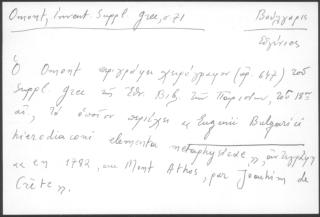 Omont, invent. Suppl. grec, σ. 71
Βούλγαρις
Εὐγένιος
Ὁ Omont περιγράφει χειρόγραφον (ἀρ. 647) τοῦ
Suppl. grec τῆς Ἐθν. Βιβ. τῶν Παρισίων, τοῦ 18ου
αἰ., τὸ ὁποῖον περιέχει « Eugenii Bulgarici
hierodiaconi elementa metaphysicae », ἀντιγραφὲν
« en 1782, au Mont Athos, par Joachim de
Crète ».